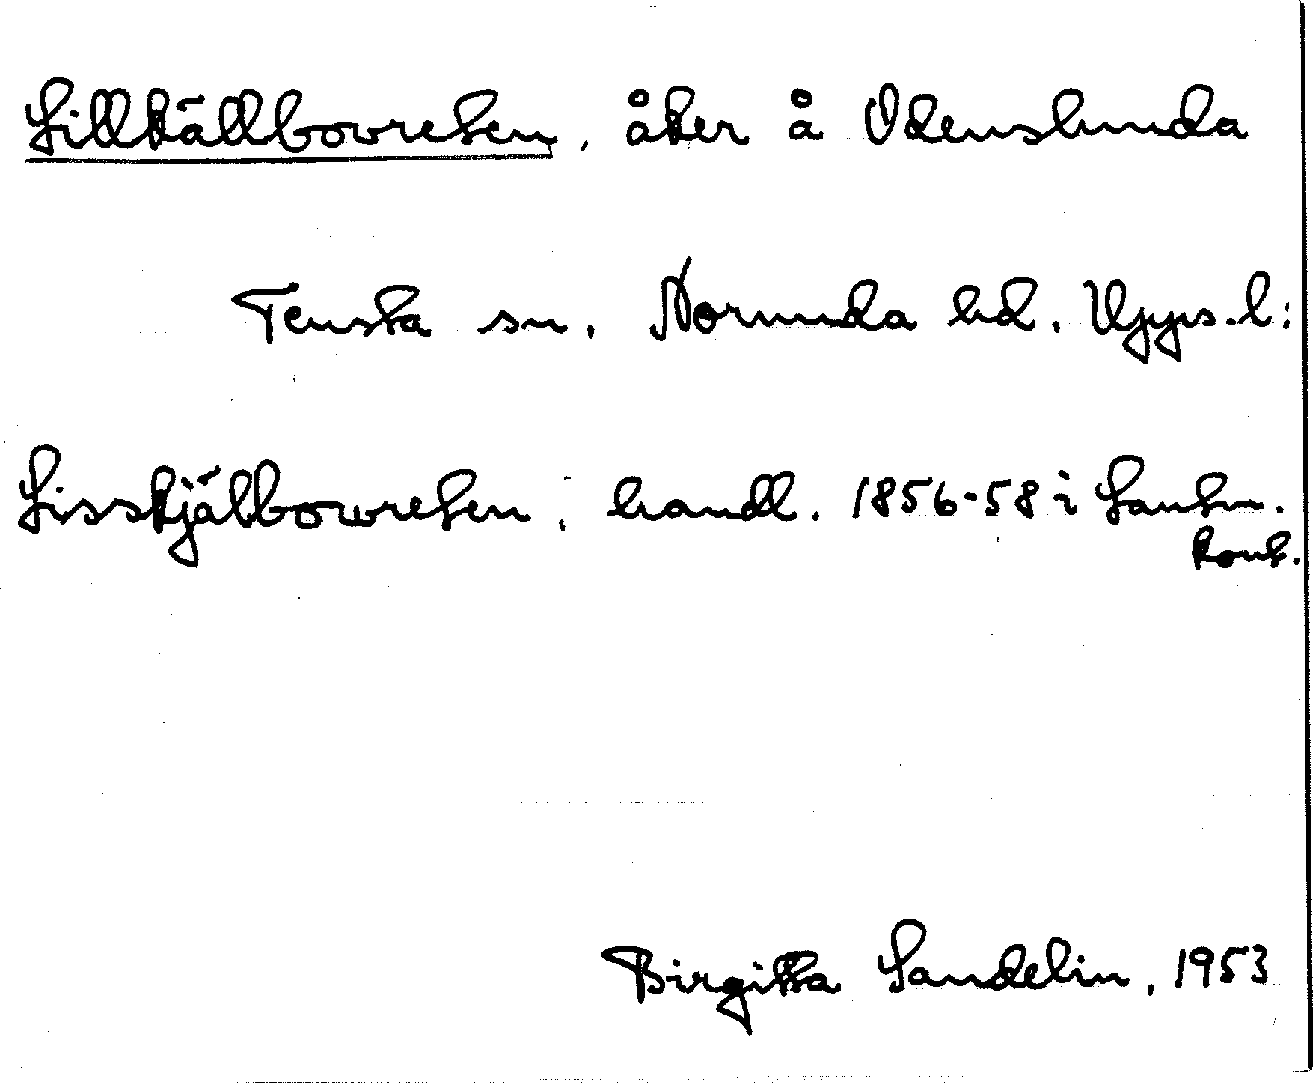 Lillkällbovreten, åker å Odenslunda
Tensta sn. Norunda hd. Upps. l:
Lisskjälbowreten, handl. 1856-58 i Lantm.
kont.
Birgitta Sandelin, 1953